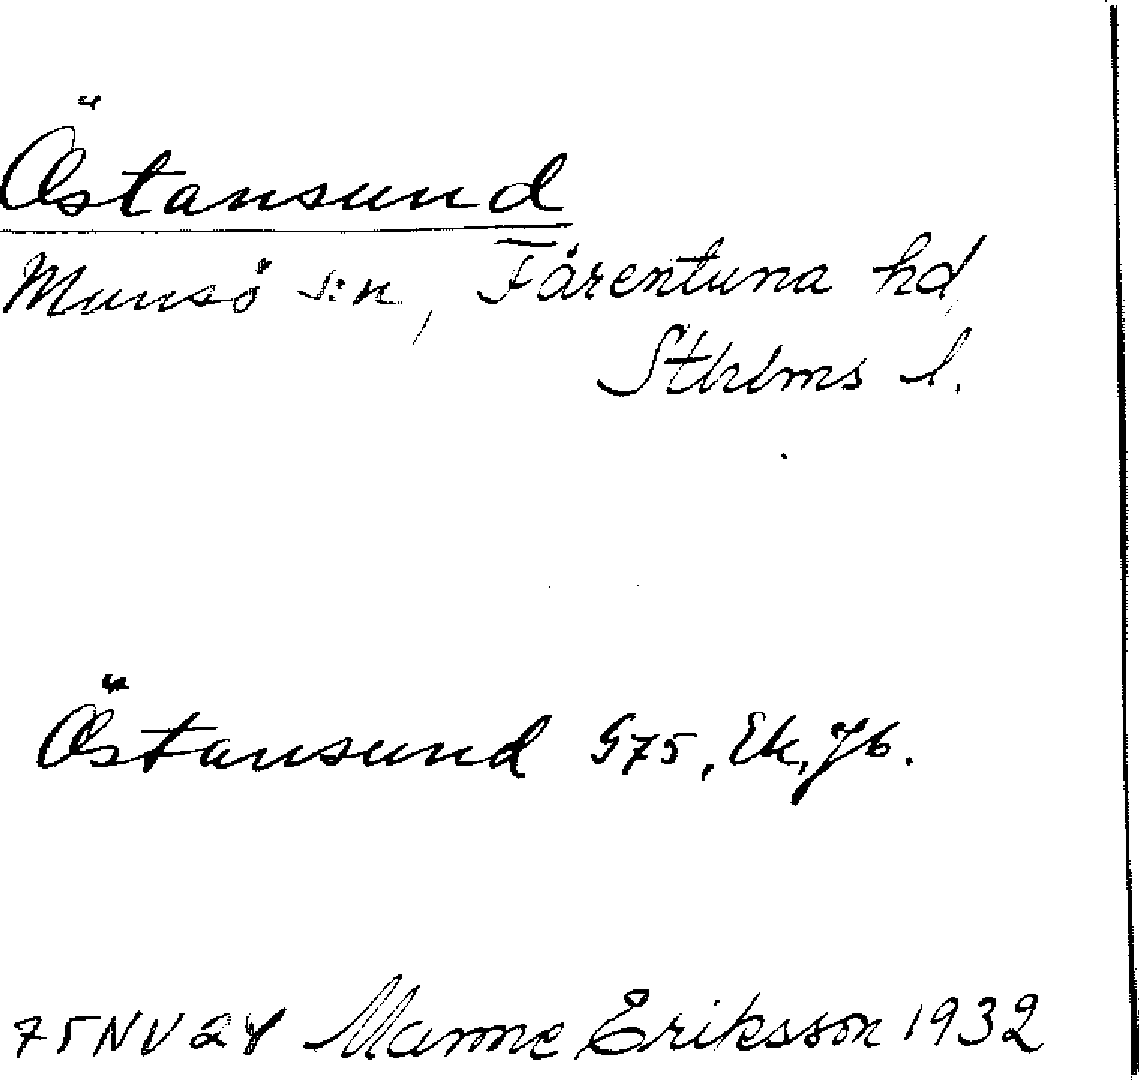 Östansund
Munsö s:n, Färentuna hd
Sthlms l.
Östansund G75, Ek, Jb.
75NV28 Manne Eriksson 1932